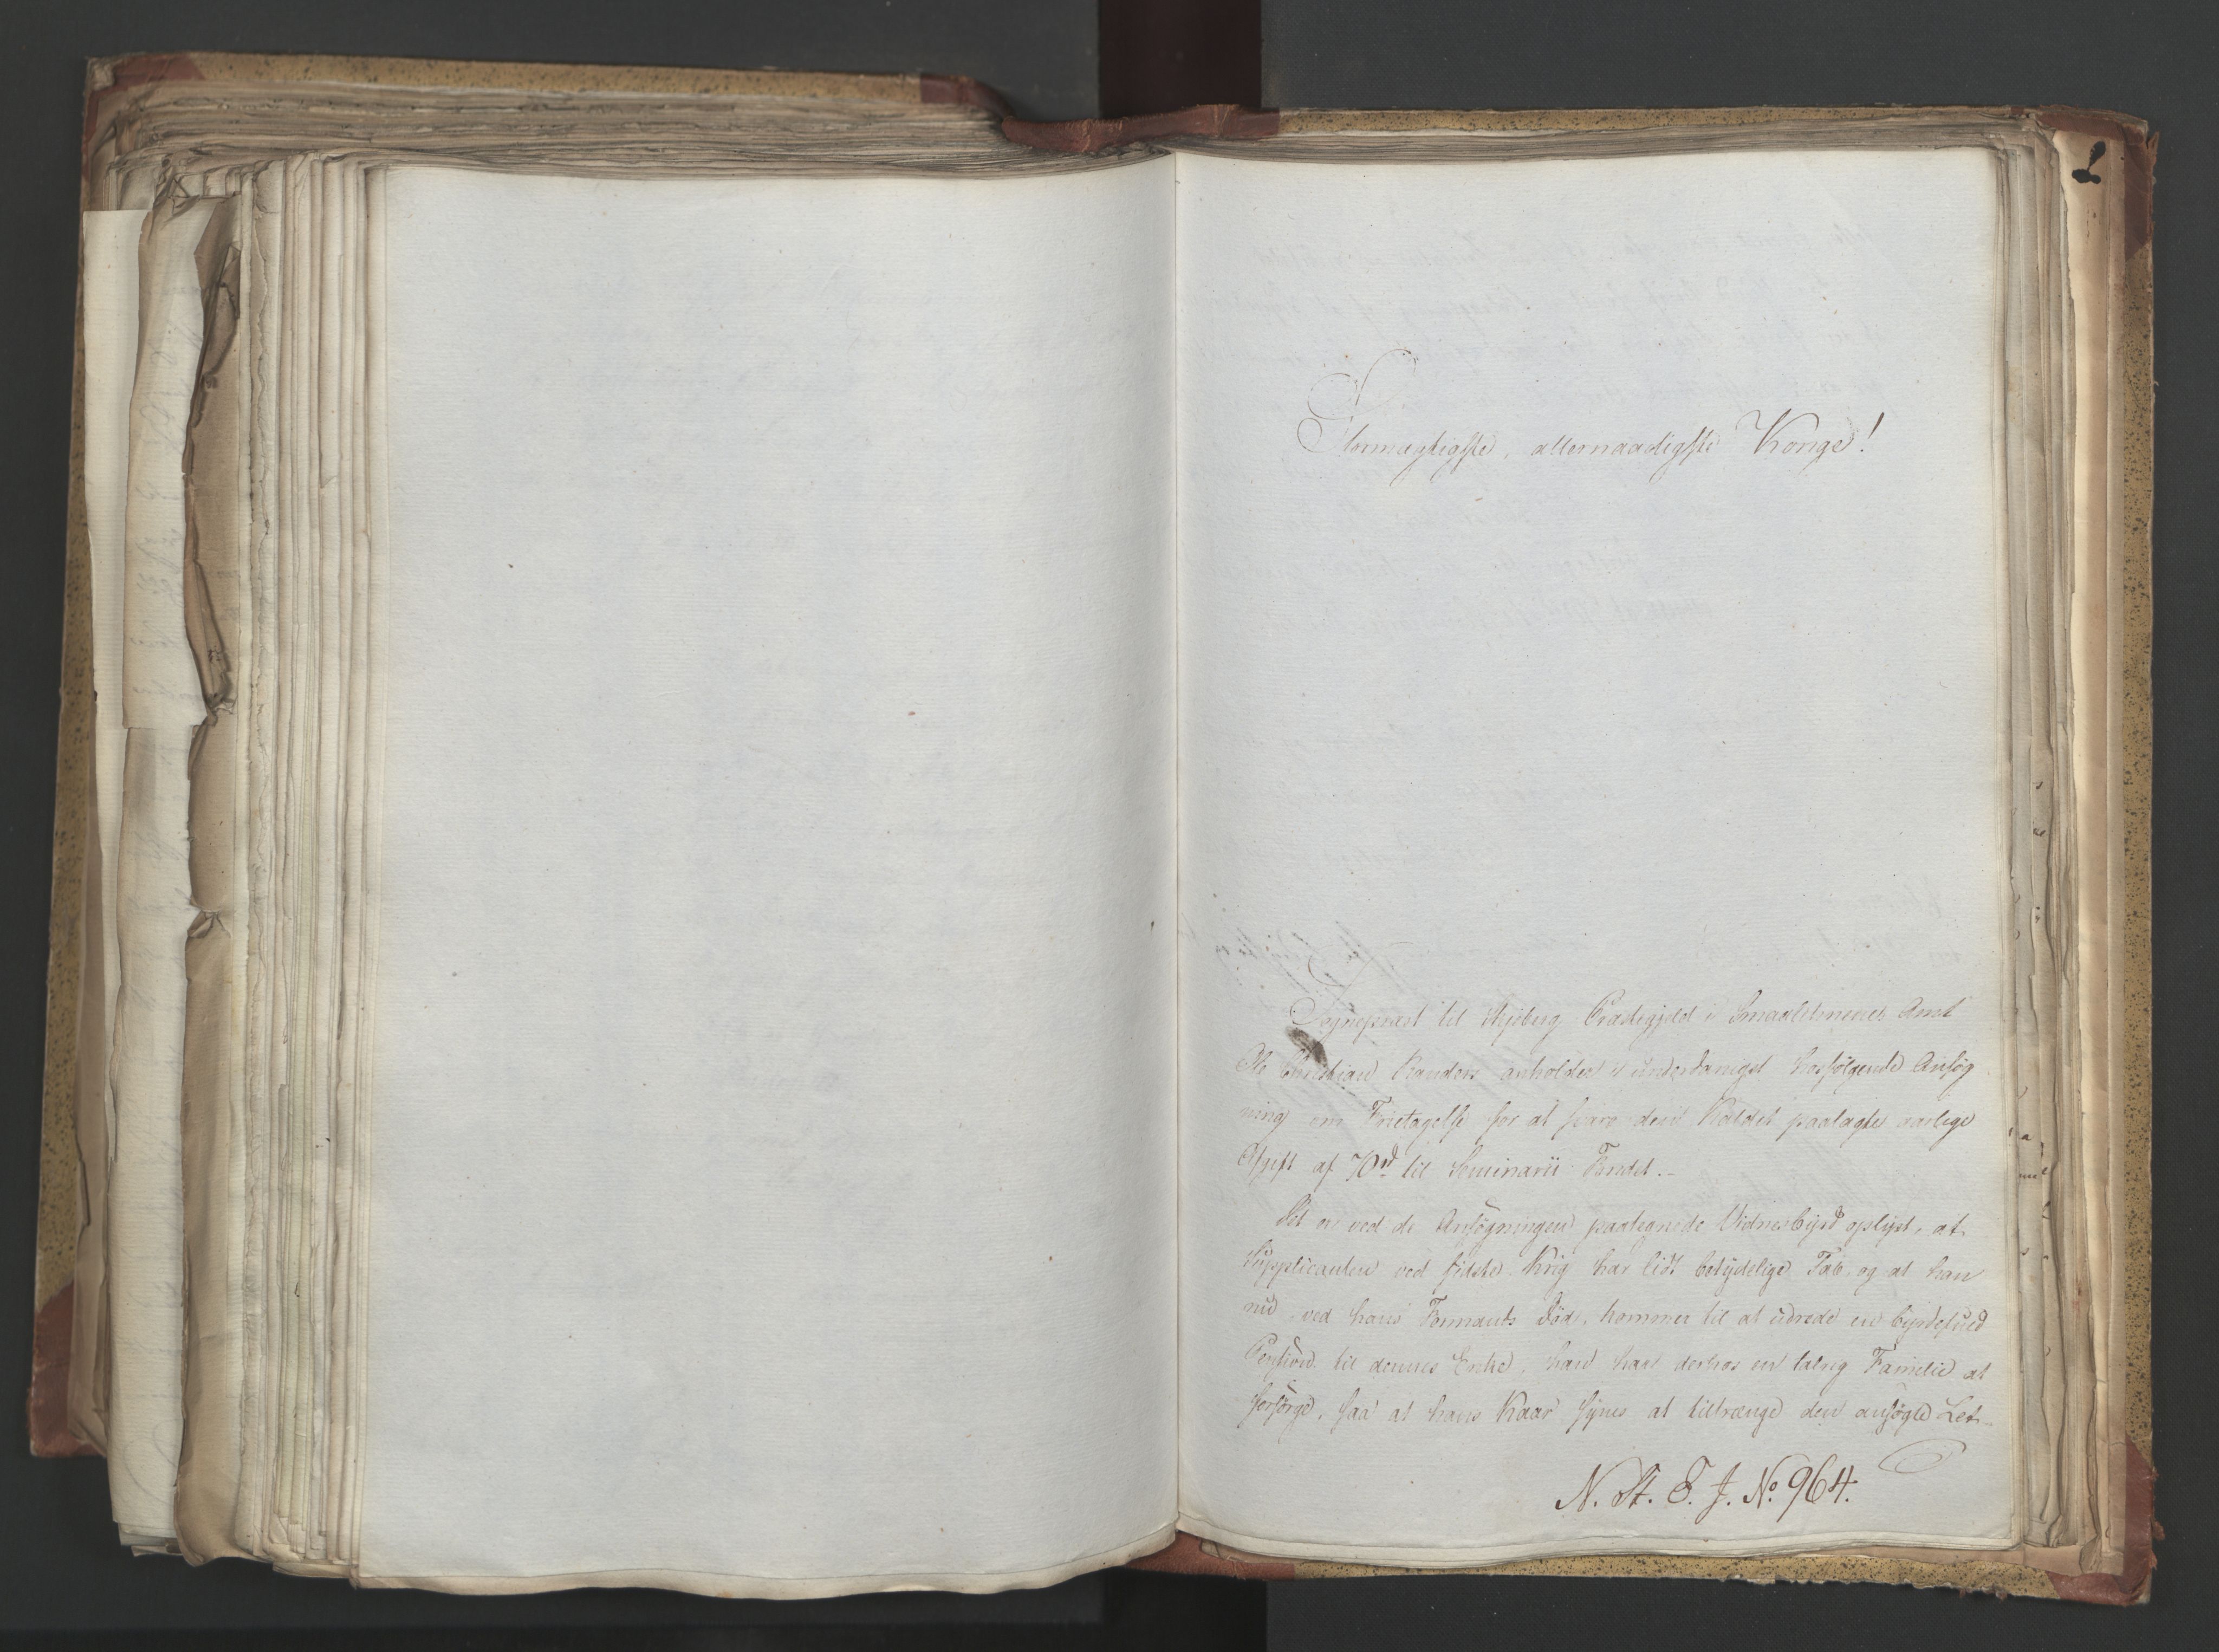 Stormægtigste, allernaadigste Konge!
Sognepræst til Skjeberg Præstegjeld i Smaalehnenes Amt
Ole Christian Randers anholder i underdanigst hosfølgende Ansøg
ning om Fritagelse for at svare den Kaldet paalagte aarlige
Afgift af 70rd til Seminarii Fondet.-
Det er ved de Ansøgningen paategnede Vidnesbyrd oplyst, at
Supplicanten ved sidste Krig har lidt betydelige Tab, og at han
nu, ved hans Formands Død, kommer til at udrede en byrdefuld
Pension til dennes Enke, han har derhos en talrig Familie at
forsørge, saa at hans Kaar synes at tiltrænge den ansøgte Let-
N. St. E. J. No. 964.